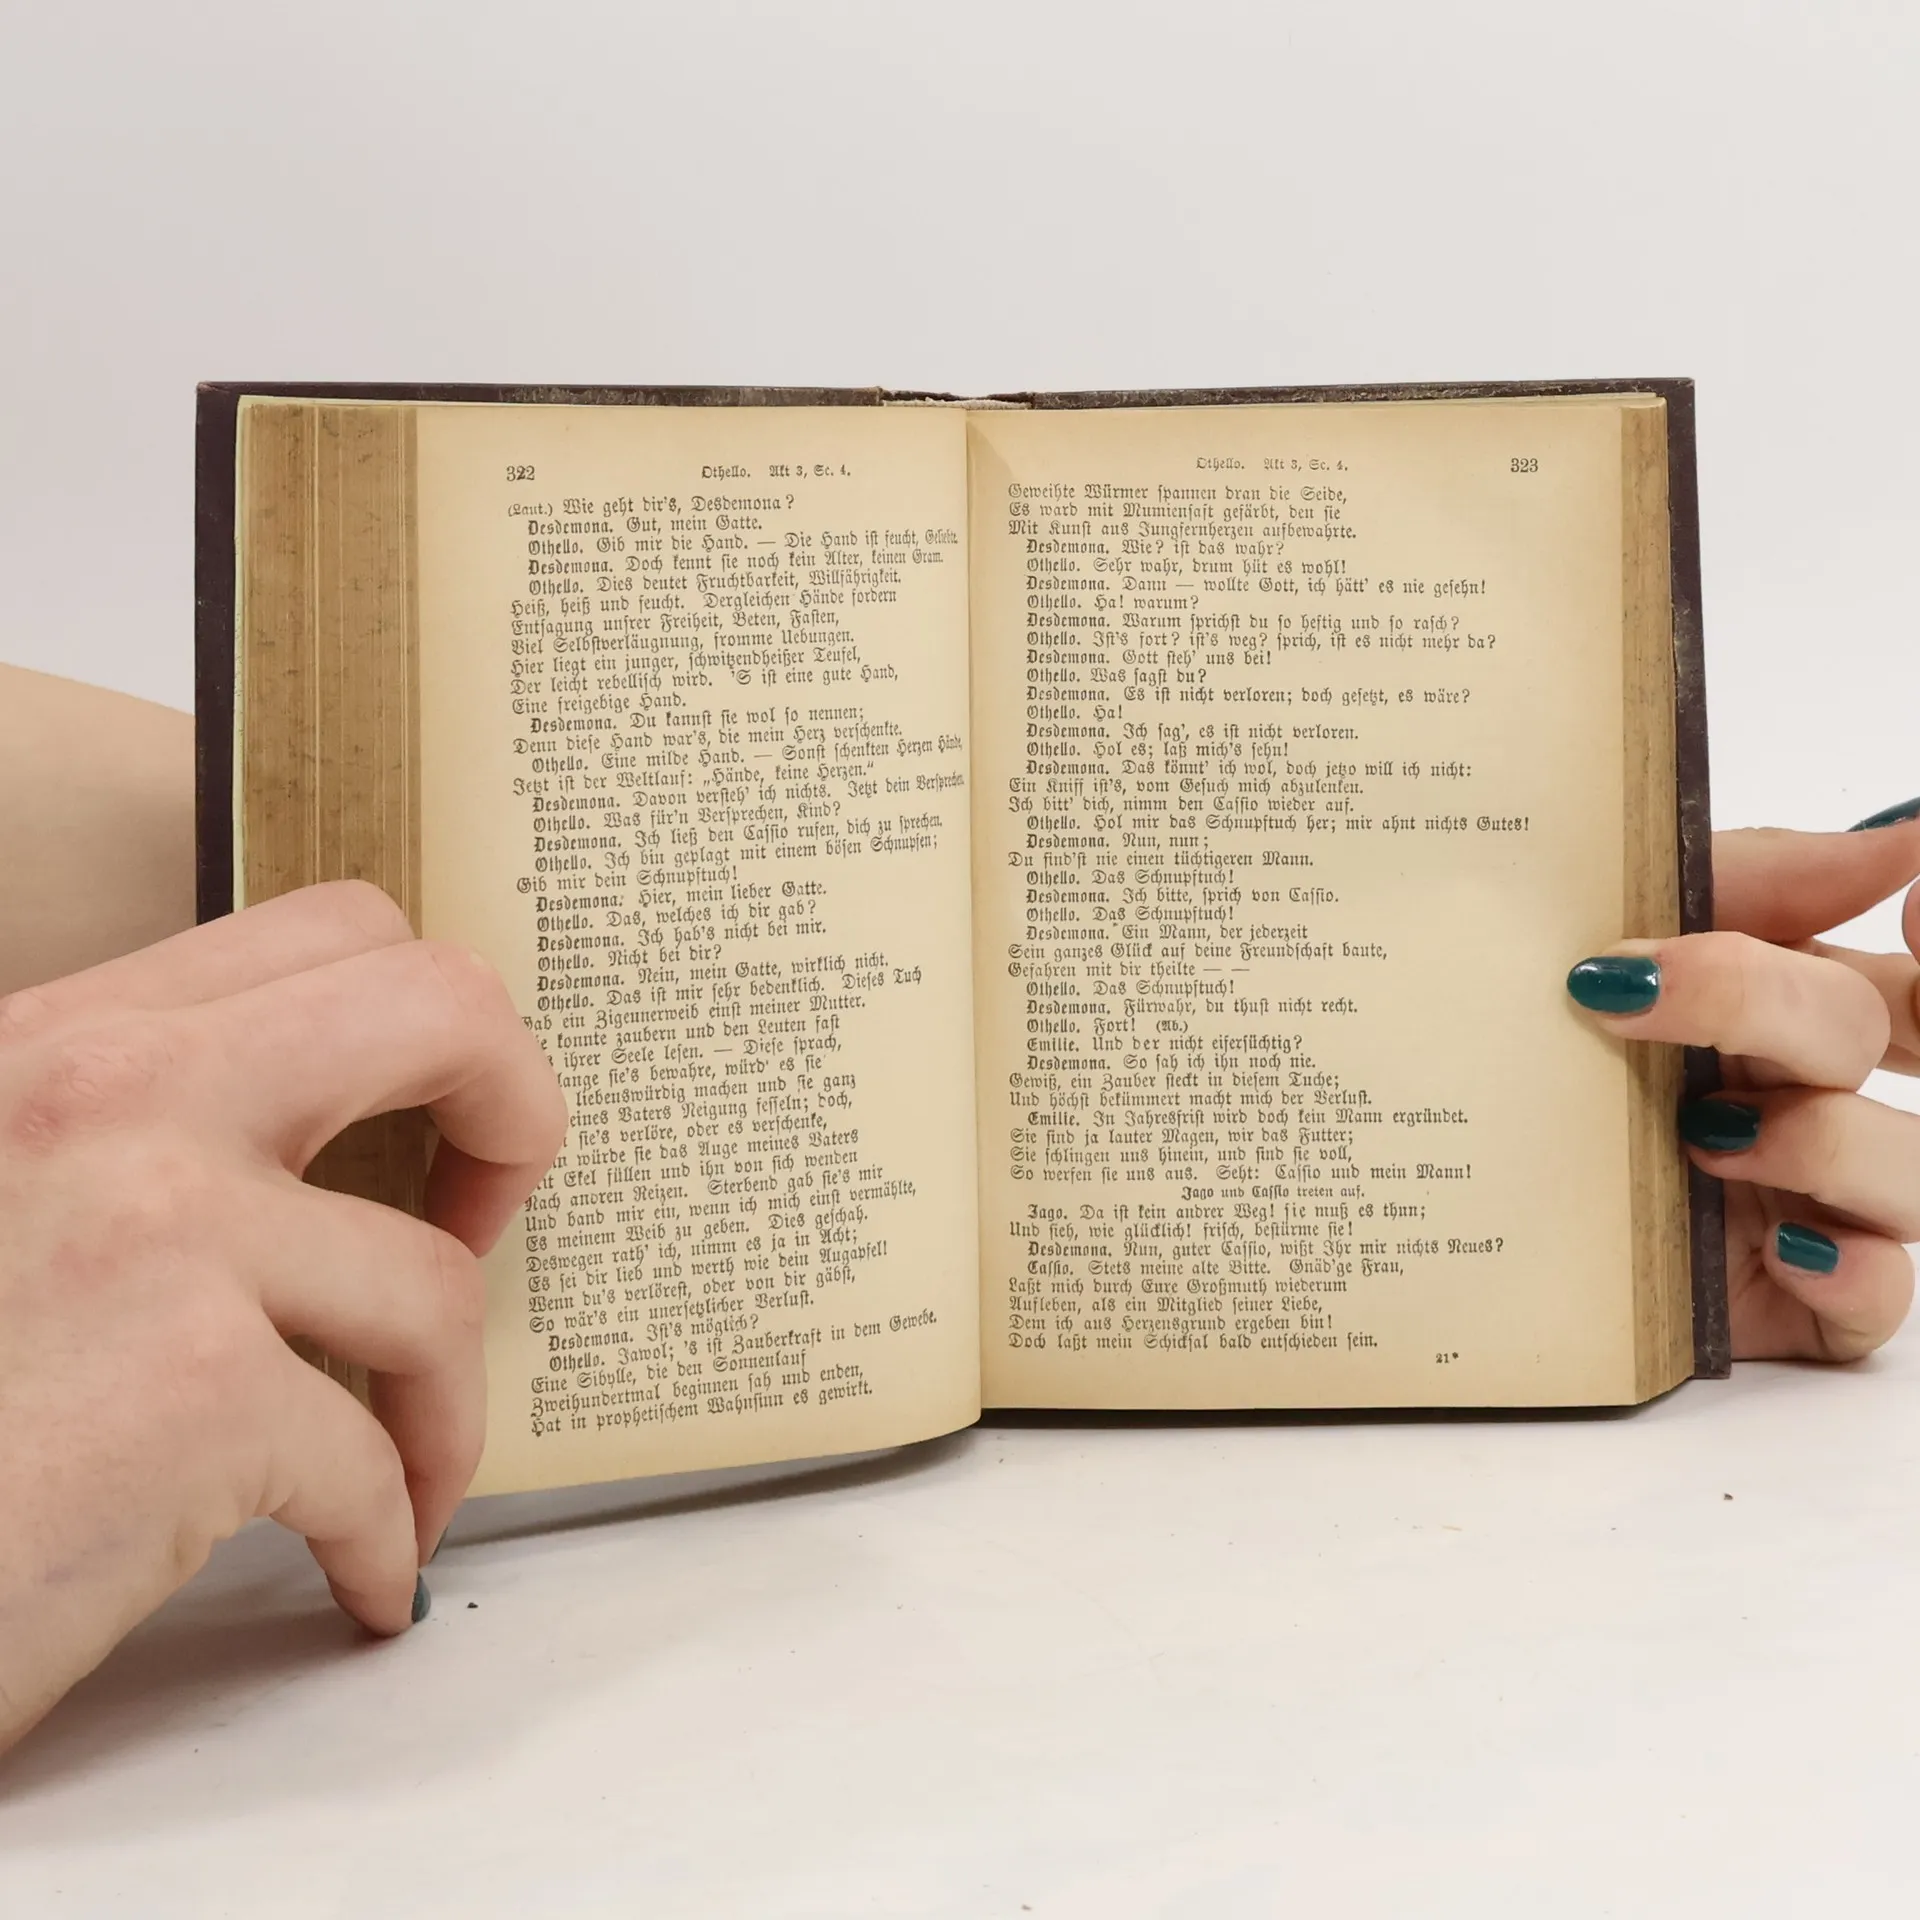 322 Othello. Akt 3, Sc. 4.
(Laut.) Wie geht dir's, Desdemona?
Desdemona. Gut, mein Gatte.
Othello. Gib mir die Hand. — Die Hand ist feucht, Geliebte.
Desdemona. Doch kennt sie noch kein Alter, keinen Gram.
Othello. Dies deutet Fruchtbarkeit, Willfährigkeit.
Heiß, heiß und feucht. Dergleichen Hände fordern
Entsagung unsrer Freiheit, Beten, Fasten,
Viel Selbstverläugnung, fromme Uebungen.
Hier liegt ein junger, schwitzendheißer Teufel,
Der leicht rebellisch wird. 'S ist eine gute Hand,
Eine freigebige Hand.
Desdemona. Du kannst sie wol so nennen;
Denn diese Hand war's, die mein Herz verschenkte.
Othello. Eine milde Hand. — Sonst schenkten Herzen Hände,
Jetzt ist der Weltlauf: „Hände, keine Herzen.“
Desdemona. Davon versteh' ich nichts. Jetzt dein Versprechen.
Othello. Was für'n Versprechen, Kind?
Desdemona. Ich ließ den Cassio rufen, dich zu sprechen.
Othello. Ich bin geplagt mit einem bösen Schnupfen;
Gib mir dein Schnupftuch!
Desdemona. Hier, mein lieber Gatte.
Othello. Das, welches ich dir gab?
Desdemona. Ich hab's nicht bei mir.
Othello. Nicht bei dir?
Desdemona. Nein, mein Gatte, wirklich nicht.
Othello. Das ist mir sehr bedenklich. Dieses Tuch
Gab ein Zigeunerweib einst meiner Mutter.
konnte zaubern und den Leuten fast
ihrer Seele lesen. — Diese sprach,
lange sie's bewahre, würd' es sie
liebenswürdig machen und sie ganz
eines Vaters Neigung fesseln; doch,
sie's verlöre, oder es verschenke,
würde sie das Auge meines Vaters
Ekel füllen und ihn von sich wenden
Nach andren Reizen. Sterbend gab sie's mir
Und band mir ein, wenn ich mich einst vermählte,
Es meinem Weib zu geben. Dies geschah.
Deswegen rath' ich, nimm es ja in Acht;
Es sei dir lieb und werth wie dein Augapfel!
Wenn du's verlörest, oder von dir gäbst,
So wär's ein unersetzlicher Verlust.
Desdemona. Ist's möglich?
Othello. Jawol; 's ist Zauberkraft in dem Gewebe.
Eine Sibylle, die den Sonnenlauf
Zweihundertmal beginnen sah und enden,
Hat in prophetischem Wahnsinn es gewirkt.
Othello. Akt 3, Sc. 4. 323
Geweihte Würmer spannen dran die Seide,
Es ward mit Mumiensaft gefärbt, den sie
Mit Kunst aus Jungfernherzen aufbewahrte.
Desdemona. Wie? ist das wahr?
Othello. Sehr wahr, drum hüt es wohl!
Desdemona. Dann — wollte Gott, ich hätt' es nie gesehn!
Othello. Ha! warum?
Desdemona. Warum sprichst du so heftig und so rasch?
Othello. Ist's fort? ist's weg? sprich, ist es nicht mehr da?
Desdemona. Gott steh' uns bei!
Othello. Was sagst du?
Desdemona. Es ist nicht verloren; doch gesetzt, es wäre?
Othello. Ha!
Desdemona. Ich sag', es ist nicht verloren.
Othello. Hol es; laß mich's sehn!
Desdemona. Das könnt' ich wol, doch jetzo will ich nicht:
Ein Kniff ist's, vom Gesuch mich abzulenken.
Ich bitt' dich, nimm den Cassio wieder auf.
Othello. Hol mir das Schnupftuch her; mir ahnt nichts Gutes!
Desdemona. Nun, nun;
Du find'st nie einen tüchtigeren Mann.
Othello. Das Schnupftuch!
Desdemona. Ich bitte, sprich von Cassio.
Othello. Das Schnupftuch!
Desdemona. Ein Mann, der jederzeit
Sein ganzes Glück auf deine Freundschaft baute,
Gefahren mit dir theilte — —
Othello. Das Schnupftuch!
Desdemona. Fürwahr, du thust nicht recht.
Othello. Fort! (Ab.)
Emilie. Und der nicht eifersüchtig?
Desdemona. So sah ich ihn noch nie.
Gewiß, ein Zauber steckt in diesem Tuche;
Und höchst bekümmert macht mich der Verlust.
Emilie. In Jahresfrist wird doch kein Mann ergründet.
Sie sind ja lauter Magen, wir das Futter;
Sie schlingen uns hinein, und sind sie voll,
So werfen sie uns aus. Seht: Cassio und mein Mann!
Jago und Cassio treten auf.
Jago. Da ist kein andrer Weg! sie muß es thun;
Und sieh, wie glücklich! frisch, bestürme sie!
Desdemona. Nun, guter Cassio, wißt Ihr mir nichts Neues?
Cassio. Stets meine alte Bitte. Gnäd'ge Frau,
Laßt mich durch Eure Großmuth wiederum
Aufleben, als ein Mitglied seiner Liebe,
Dem ich aus Herzensgrund ergeben bin!
Doch laßt mein Schicksal bald entschieden sein.
21*